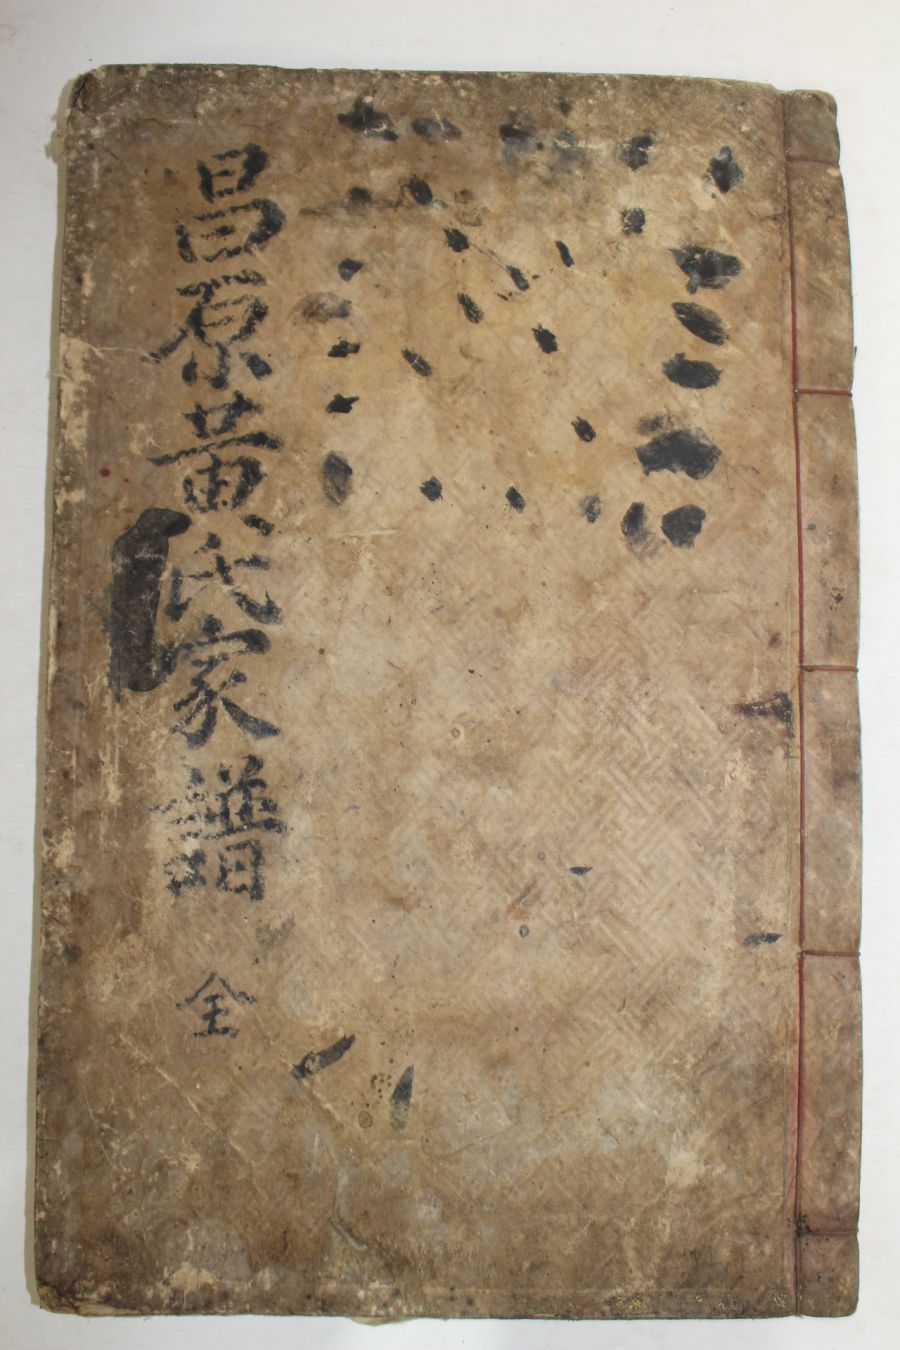 昌原黃氏家譜
全